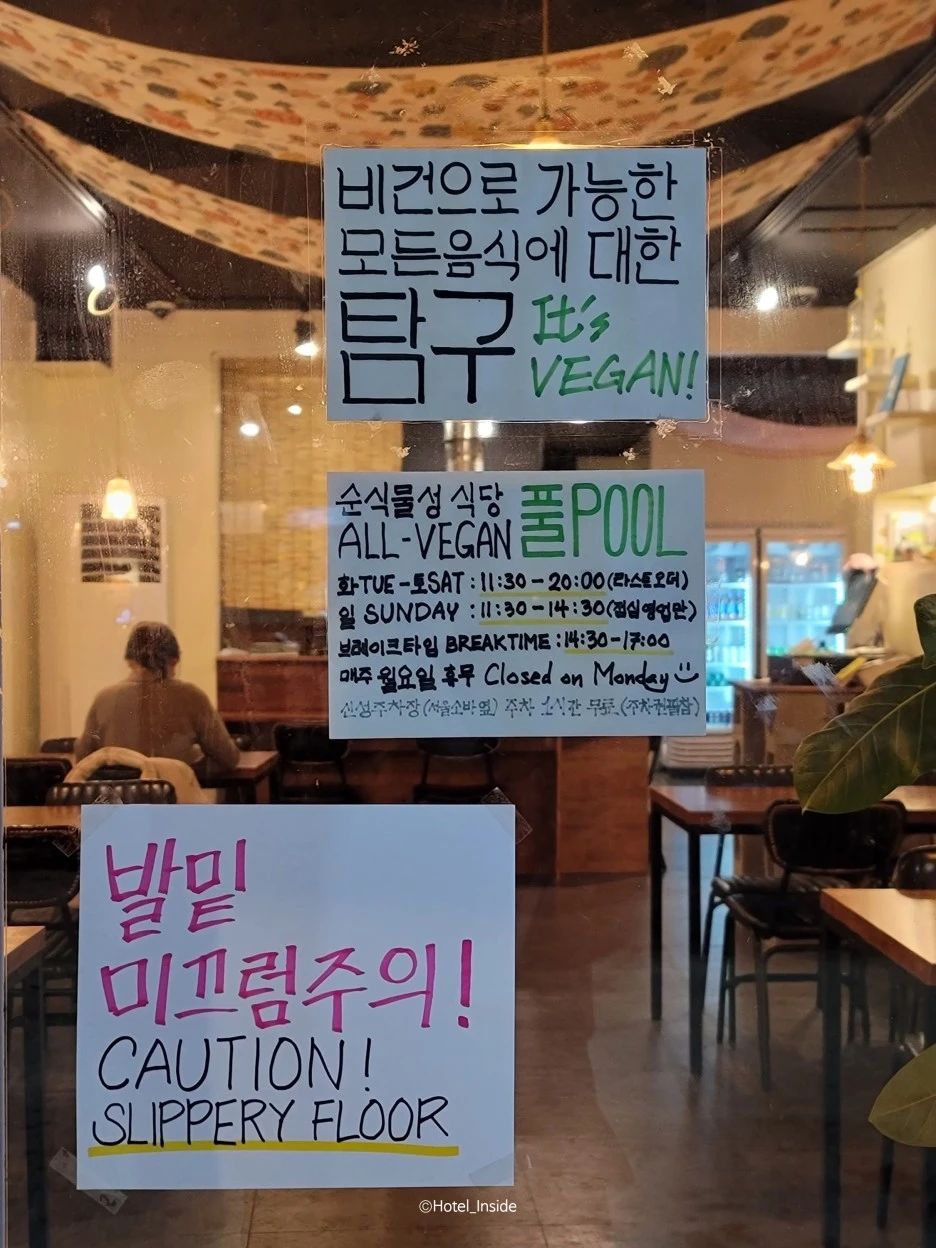 비건으로 가능한
모든음식에 대한
탐구 It's
VEGAN!
순식물성 식당
ALL-VEGAN 풀POOL
화TUE-토SAT : 11:30 - 20:00 (라스트오더)
일 SUNDAY : 11:30 - 14:30 (점심영업만)
브레이크타임 BREAKTIME : 14:30 - 17:00
매주 월요일 휴무 Closed on Monday
신성주차장 (서울소바 옆) 주차 1시간 무료 (주차권필참)
발밑
미끄럼주의!
CAUTION!
SLIPPERY FLOOR
©Hotel_Inside